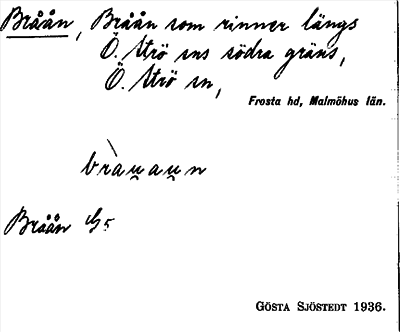 Bråån, Bråån som rinner längs
Ö. Strö sns södra gräns,
Ö. Strö sn,
Frosta hd, Malmöhus län.
bràu̯au̯n
Bråån G5
GÖSTA SJÖSTEDT 1936.